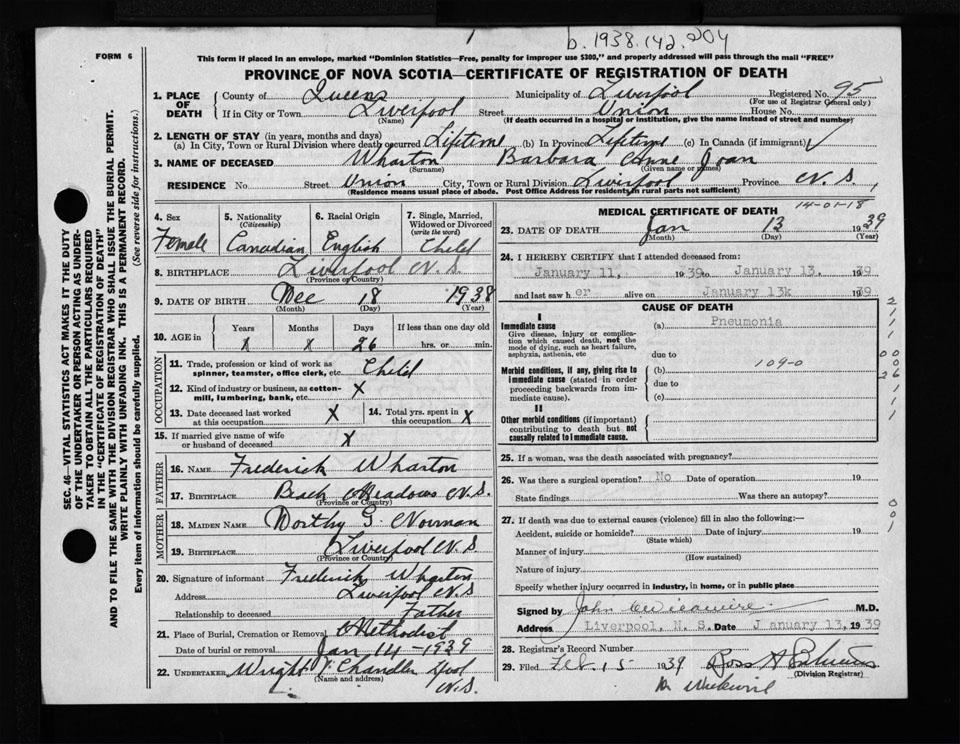 b. 1938.142.204
FORM 6
This form if placed in an envelope, marked "Dominion Statistics—Free, penalty for improper use $300," and properly addressed will pass through the mail "FREE"
PROVINCE OF NOVA SCOTIA—CERTIFICATE OF REGISTRATION OF DEATH
SEC. 46—VITAL STATISTICS ACT MAKES IT THE DUTY
OF THE UNDERTAKER OR PERSON ACTING AS UNDER-
TAKER TO OBTAIN ALL THE PARTICULARS REQUIRED
IN THE "CERTIFICATE OF REGISTRATION OF DEATH"
AND TO FILE THE SAME WITH THE DIVISION REGISTRAR WHO SHALL ISSUE THE BURIAL PERMIT.
WRITE PLAINLY WITH UNFADING INK. THIS IS A PERMANENT RECORD.
Every item of information should be carefully supplied. (See reverse side for instructions.)
1. PLACE OF DEATH County of Queens Municipality of Liverpool Registered No. 95
(For use of Registrar General only)
If in City or Town Liverpool Street Union House No.
(Name) (If death occurred in a hospital or institution, give the name instead of street and number)
2. LENGTH OF STAY (in years, months and days)
(a) In City, Town or Rural Division where death occurred Lifetime (b) In Province Lifetime (c) In Canada (if immigrant)
3. NAME OF DECEASED Wharton Barbara Anne Joan
(Surname) (Given name or names)
RESIDENCE No. Street Union City, Town or Rural Division Liverpool Province N.S.
(Residence means usual place of abode. Post Office Address for residents in rural parts not sufficient)
4. Sex Female
5. Nationality (Citizenship) Canadian
6. Racial Origin English
7. Single, Married, Widowed or Divorced (write the word) Child
8. BIRTHPLACE Liverpool N.S.
(Province or Country)
9. DATE OF BIRTH Dec 18 1938
(Month) (Day) (Year)
10. AGE in Years X Months X Days 26 If less than one day old hrs. or min.
OCCUPATION
11. Trade, profession or kind of work as spinner, teamster, office clerk, etc. Child
12. Kind of industry or business, as cotton-mill, lumbering, bank, etc. X
13. Date deceased last worked at this occupation X 14. Total yrs. spent in this occupation X
15. If married give name of wife or husband of deceased X
FATHER
16. NAME Frederick Wharton
17. BIRTHPLACE Beach Meadows N.S.
(Province or Country)
MOTHER
18. MAIDEN NAME Dorthy G. Norman
19. BIRTHPLACE Liverpool N.S.
(Province or Country)
20. Signature of informant Frederick Wharton
Address Liverpool N.S.
Relationship to deceased Father
21. Place of Burial, Cremation or Removal Methodist
Date of burial or removal Jan 14-1939
22. UNDERTAKER Wright & Chandler Lpool
(Name and address) N.S.
MEDICAL CERTIFICATE OF DEATH
14-01-18
23. DATE OF DEATH Jan 13 1939
(Month) (Day) (Year)
24. I HEREBY CERTIFY that I attended deceased from:
January 11, 1939 to January 13. 1939
and last saw her alive on January 13k 1939
CAUSE OF DEATH
I
Immediate cause (a) Pneumonia
Give disease, injury or complication which caused death, not the mode of dying, such as heart failure, asphyxia, asthenia, etc
due to
Morbid conditions, if any, giving rise to immediate cause (stated in order proceeding backwards from immediate cause). (b) 109-0
due to
(c)
II
Other morbid conditions (if important) contributing to death but not causally related to immediate cause.
25. If a woman, was the death associated with pregnancy?
26. Was there a surgical operation? No Date of operation 19
State findings Was there an autopsy?
27. If death was due to external causes (violence) fill in also the following:—
Accident, suicide or homicide? Date of injury 19
(State which)
Manner of injury
(How sustained)
Nature of injury
Specify whether injury occurred in industry, in home, or in public place
Signed by John M.D.
Address Liverpool, N. S. Date January 13, 1939
28. Registrar's Record Number
29. Filed Feb. 15 1939 Ross A.
(Division Registrar)